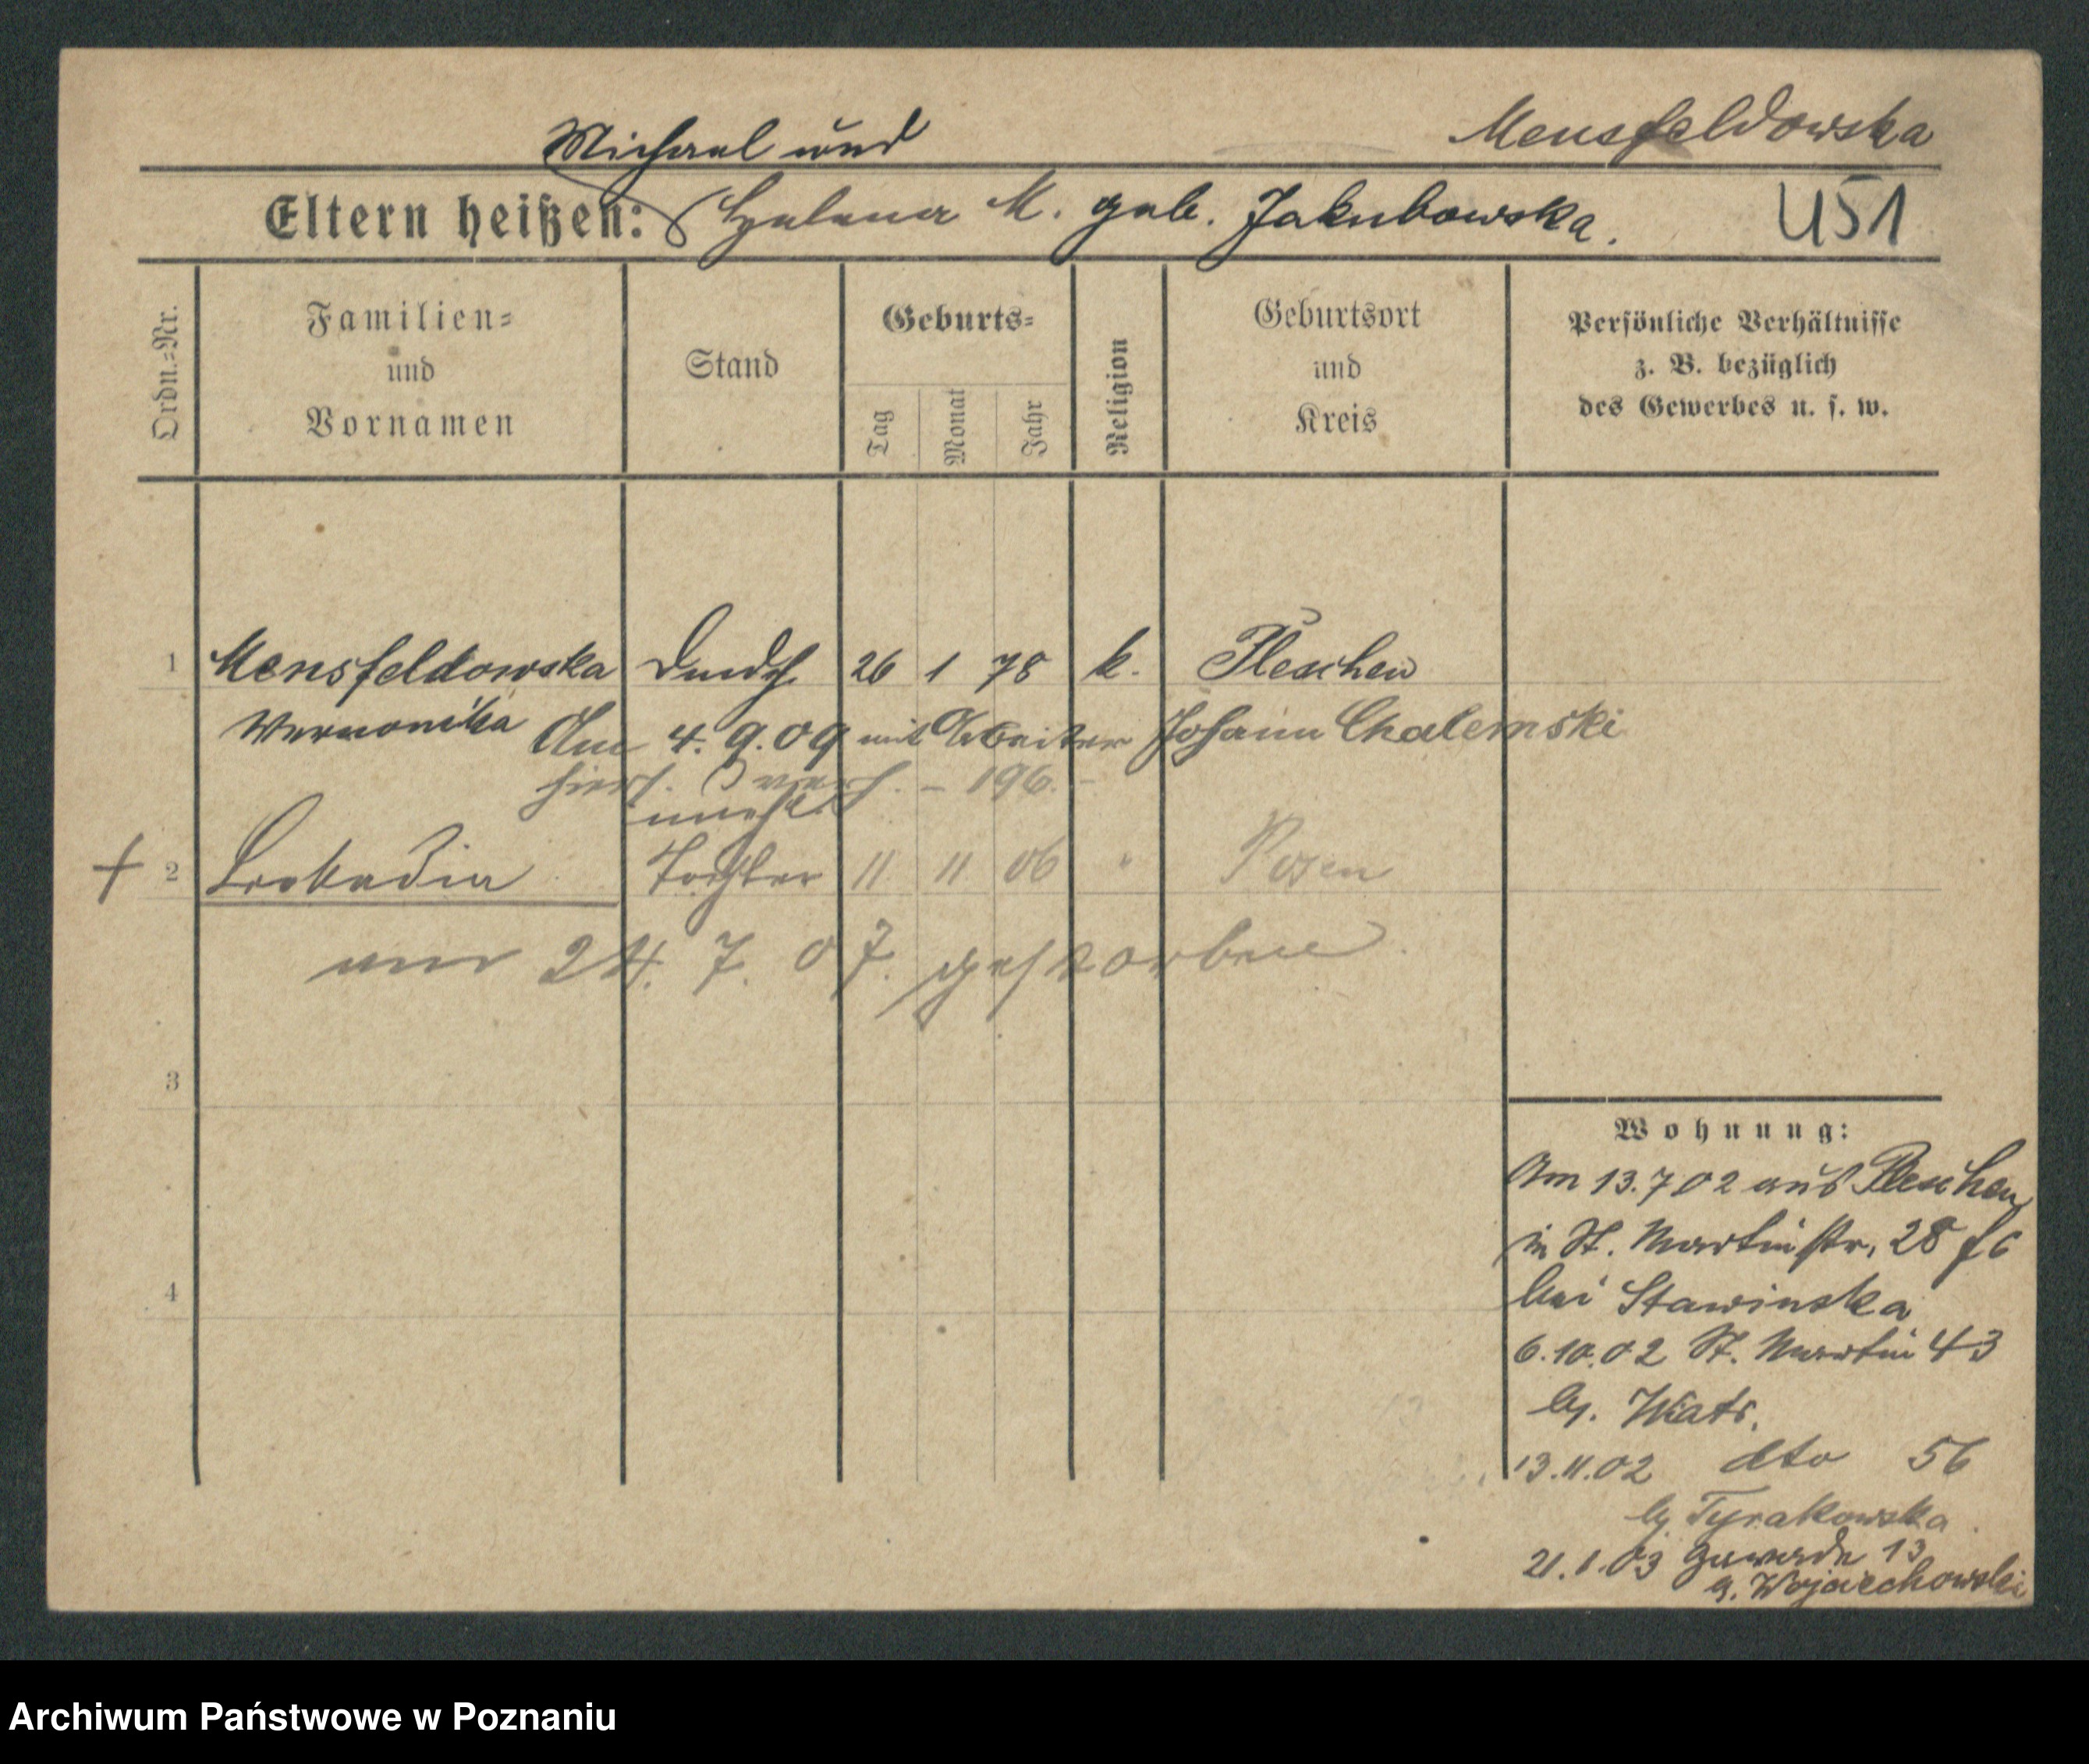 Mensfeldowska
Michael und
Eltern heißen: Helena M. geb. Jakubowska.
U51
Ordn.=Nr.
Familien=
und
Vornamen
Stand
Geburts=
Tag
Monat
Jahr
Religion
Geburtsort
und
Kreis
Persönliche Verhältnisse
z. B. bezüglich
des Gewerbes u. s. w.
1 Mensfeldowska 26 1 78 k. Pleschen
Veronika Am 4.9.09 mit Arbeiter Johann Chalemski
hier – 196. –
unehl.
+ 2 Leokadia Tochter 11 11 06 " Posen
am 24. 7. 07. gestorben.
3
4
Wohnung:
Am 13.7 02 aus Pleschen
in St. Martinstr. 28
bei Stawinska
6.10.02 St. Martin 43
b/. Wiatr.
13.11.02 dto 56
b/ Tyrakowska.
21.1.03 13
b. Wojciechowski
Archiwum Państwowe w Poznaniu